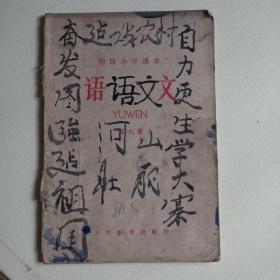 建设农村
初级小学课本
语语文文
YUWEN
第七册
自力更生学大寨
奋发图强建祖国
山丽
河壮
人民教育出版社